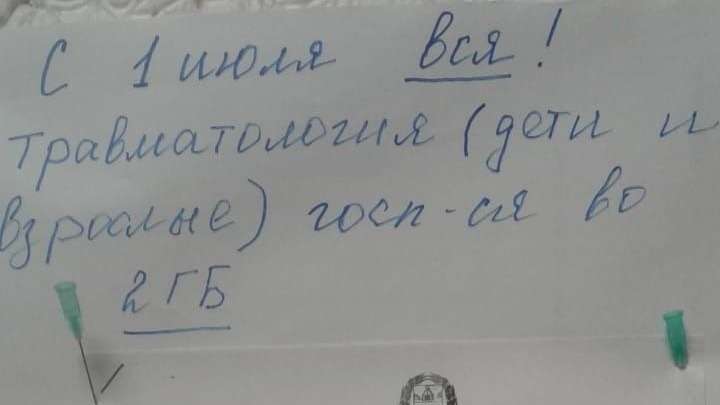 С 1 июля вся!
травматология (дети и
взрослые) госп-ся во
2 ГБ